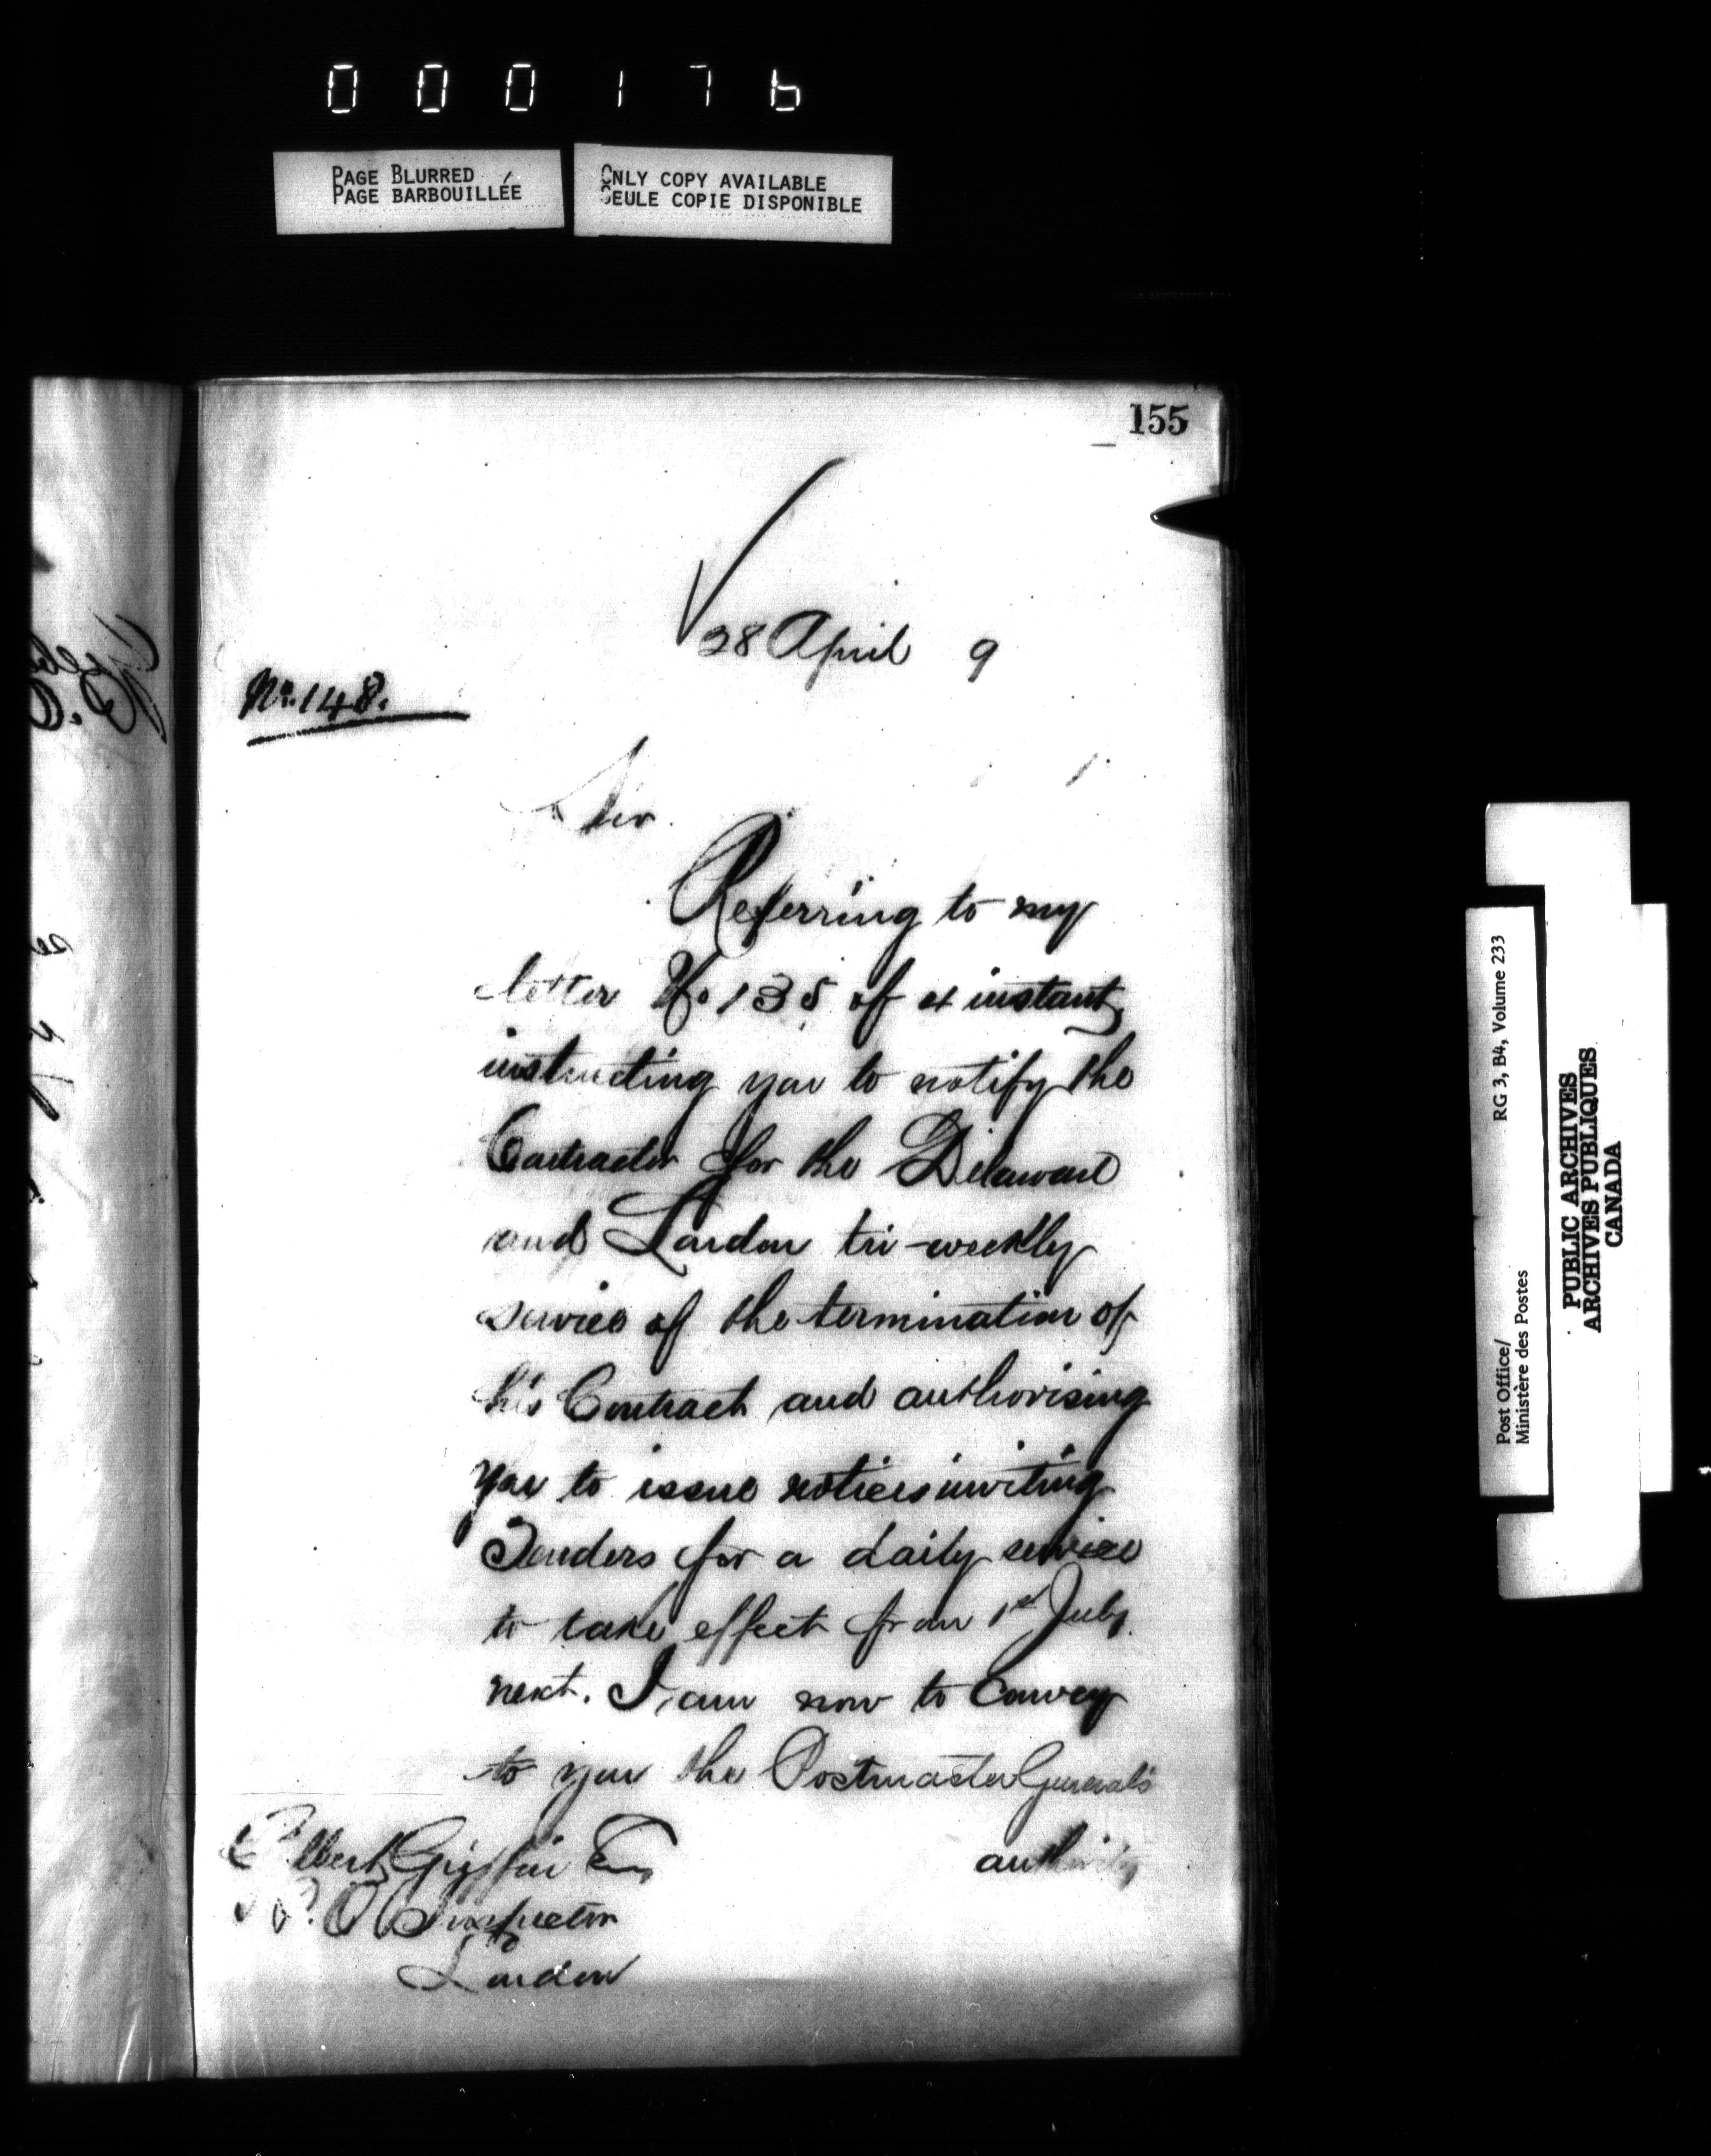 000176
PAGE BLURRED
PAGE BARBOUILLÉE
ONLY COPY AVAILABLE
SEULE COPIE DISPONIBLE
155
28 April 9
No. 148.
Sir.
Referring to my
letter No 135 of 4 instant,
instructing you to notify the
Contractor for the Delaware
and London tri-weekly
service of the termination of
his Contract and authorising
you to issue notices inviting
Tenders for a daily service
to take effect from 1st July
next. I am now to Convey
to you the Postmaster General's
authority
Gilbert Griffin Esq
P.O Inspector
London
Post Office/
Ministère des Postes
RG 3, B4, Volume 233
PUBLIC ARCHIVES
ARCHIVES PUBLIQUES
CANADA